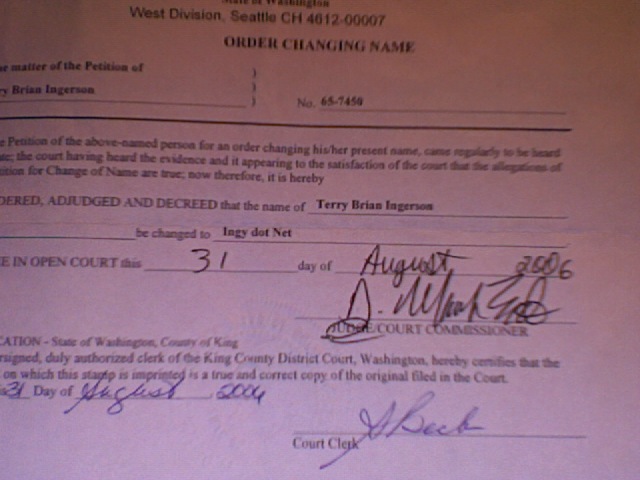 State of Washington
West Division, Seattle CH 4612-00007
ORDER CHANGING NAME
matter of the Petition of )
)
Brian Ingerson ) No. 65-7450
Petition of the above-named person for an order changing his/her present name, came regularly to be heard
the court having heard the evidence and it appearing to the satisfaction of the court that the allegations of
for Change of Name are true; now therefore, it is hereby
DERED, ADJUDGED AND DECREED that the name of Terry Brian Ingerson
be changed to Ingy dot Net
E IN OPEN COURT this 31 day of August 2006
JUDGE/COURT COMMISSIONER
CATION - State of Washington, County of King
rsigned, duly authorized clerk of the King County District Court, Washington, hereby certifies that the
on which this stamp is imprinted is a true and correct copy of the original filed in the Court.
31 Day of August, 2006
S Beck
Court Clerk